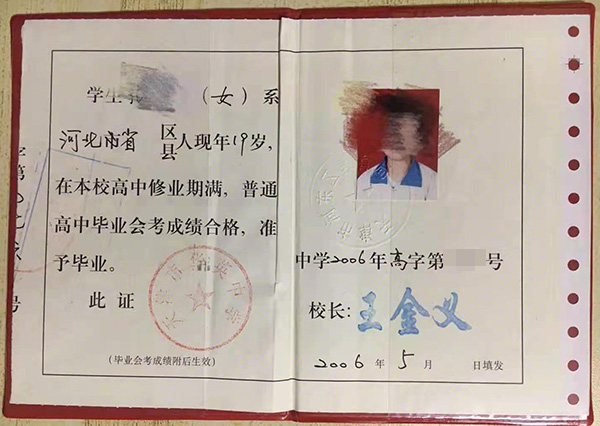 学生
（女）系
河北市省 区县人现年19岁，
在本校高中修业期满，普通
高中毕业会考成绩合格，准
予毕业。
此证
（毕业会考成绩附后生效）
中学2006年高字第 号
校长：王金义
2006年5月 日填发
字第
号